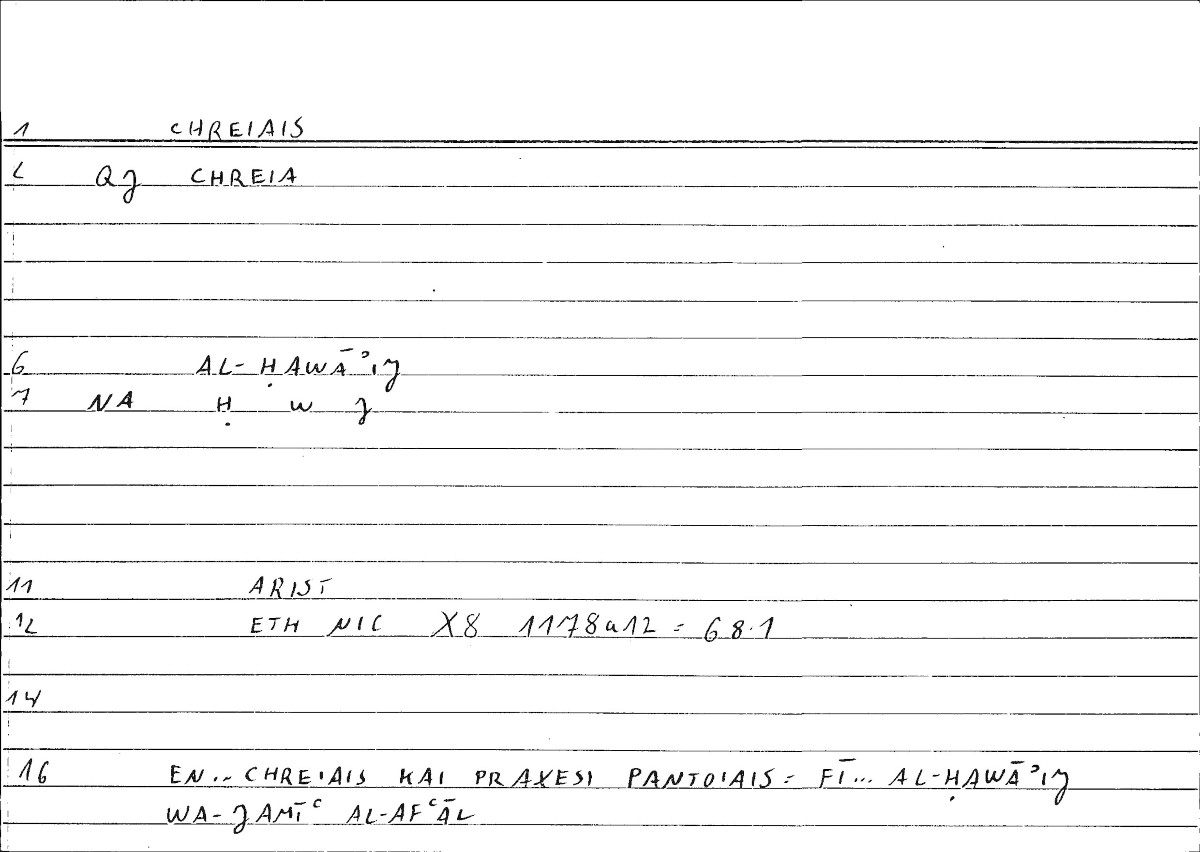 1 CHREIAIS
2 QJ CHREIA
6 AL-ḤAWĀʾIJ
7 NA Ḥ W J
11 ARIST
12 ETH NIC X8 1178a12 = 68.1
14
16 EN... CHREIAIS KAI PRAXESI PANTOIAIS = FĪ... AL-ḤAWĀʾIJ
WA-JAMĪʿ AL-AFʿĀL